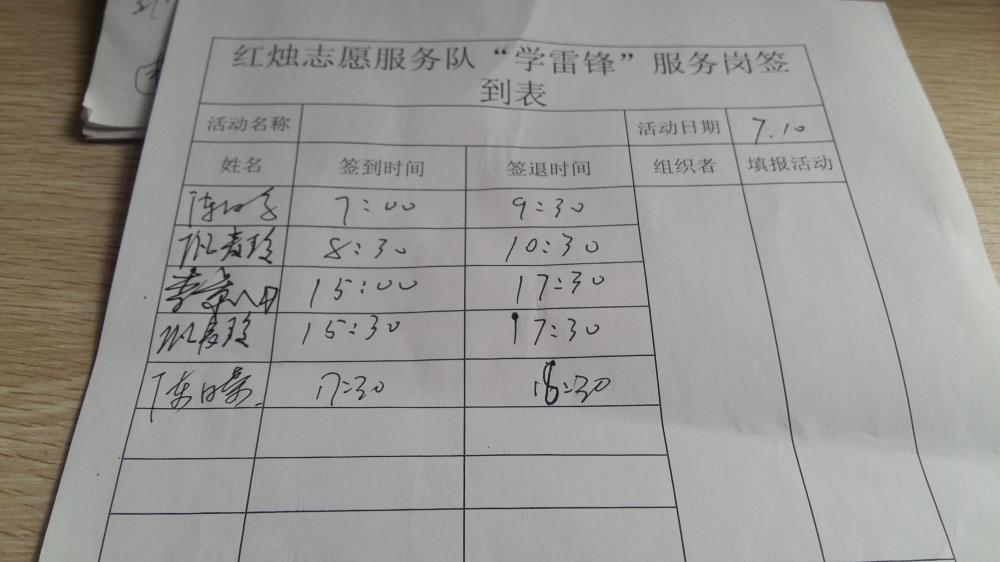 红烛志愿服务队“学雷锋”服务岗签
到表
活动名称 活动日期 7.10
姓名 签到时间 签退时间 组织者 填报活动
7:00 9:30
8:30 10:30
15:00 17:30
15:30 17:30
17:30 18:30